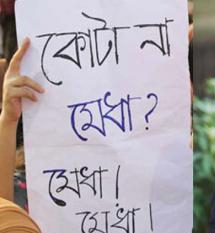 কোটা না
মেধা?
মেধা!
মেধা!